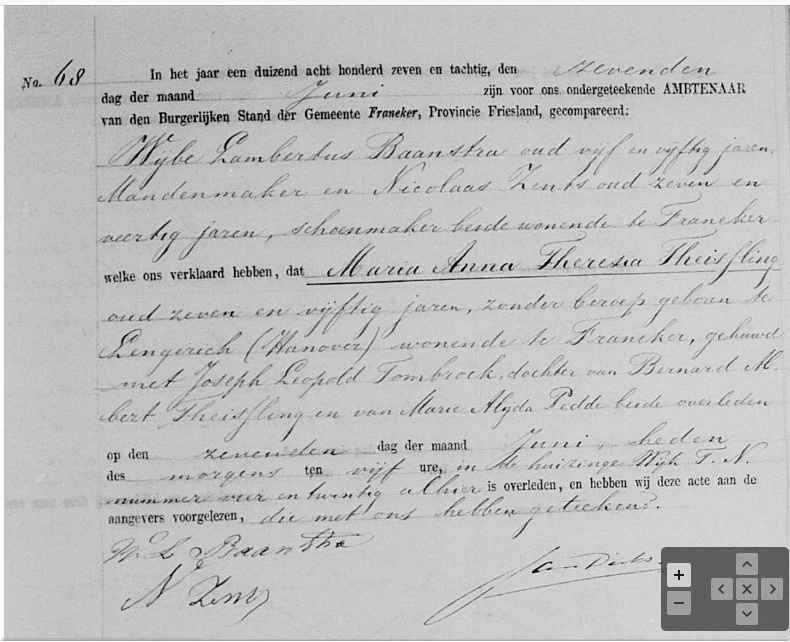 No. 68 In het jaar een duizend acht honderd zeven en tachtig, den zevenden
dag der maand Juni zijn voor ons ondergeteekende AMBTENAAR
van den Burgerlijken Stand der Gemeente Franeker, Provincie Friesland, gecompareerd:
Wijbe Lambertus Baanstra oud vijf en vijftig jaren,
Mandenmaker en Nicolaas Zents oud zeven en
veertig jaren, schoenmaker beide wonende te Franeker
welke ons verklaard hebben, dat Maria Anna Theresia Theissling
oud zeven en vijftig jaren, zonder beroep geboren te
Lengerich (Hanover) wonende te Franeker, gehuwd
met Joseph Leopold Tombrock, dochter van Bernard Al-
bert Theissling en van Marie Alijda Pedde beide overleden
op den zevenden dag der maand Juni, heden
des morgens ten vijf ure, in de huizinge Wijk N.
nummer vier en twintig alhier is overleden, en hebben wij deze acte aan de
aangevers voorgelezen, die met ons hebben geteekend.
W. L. Baanstra
N Zents